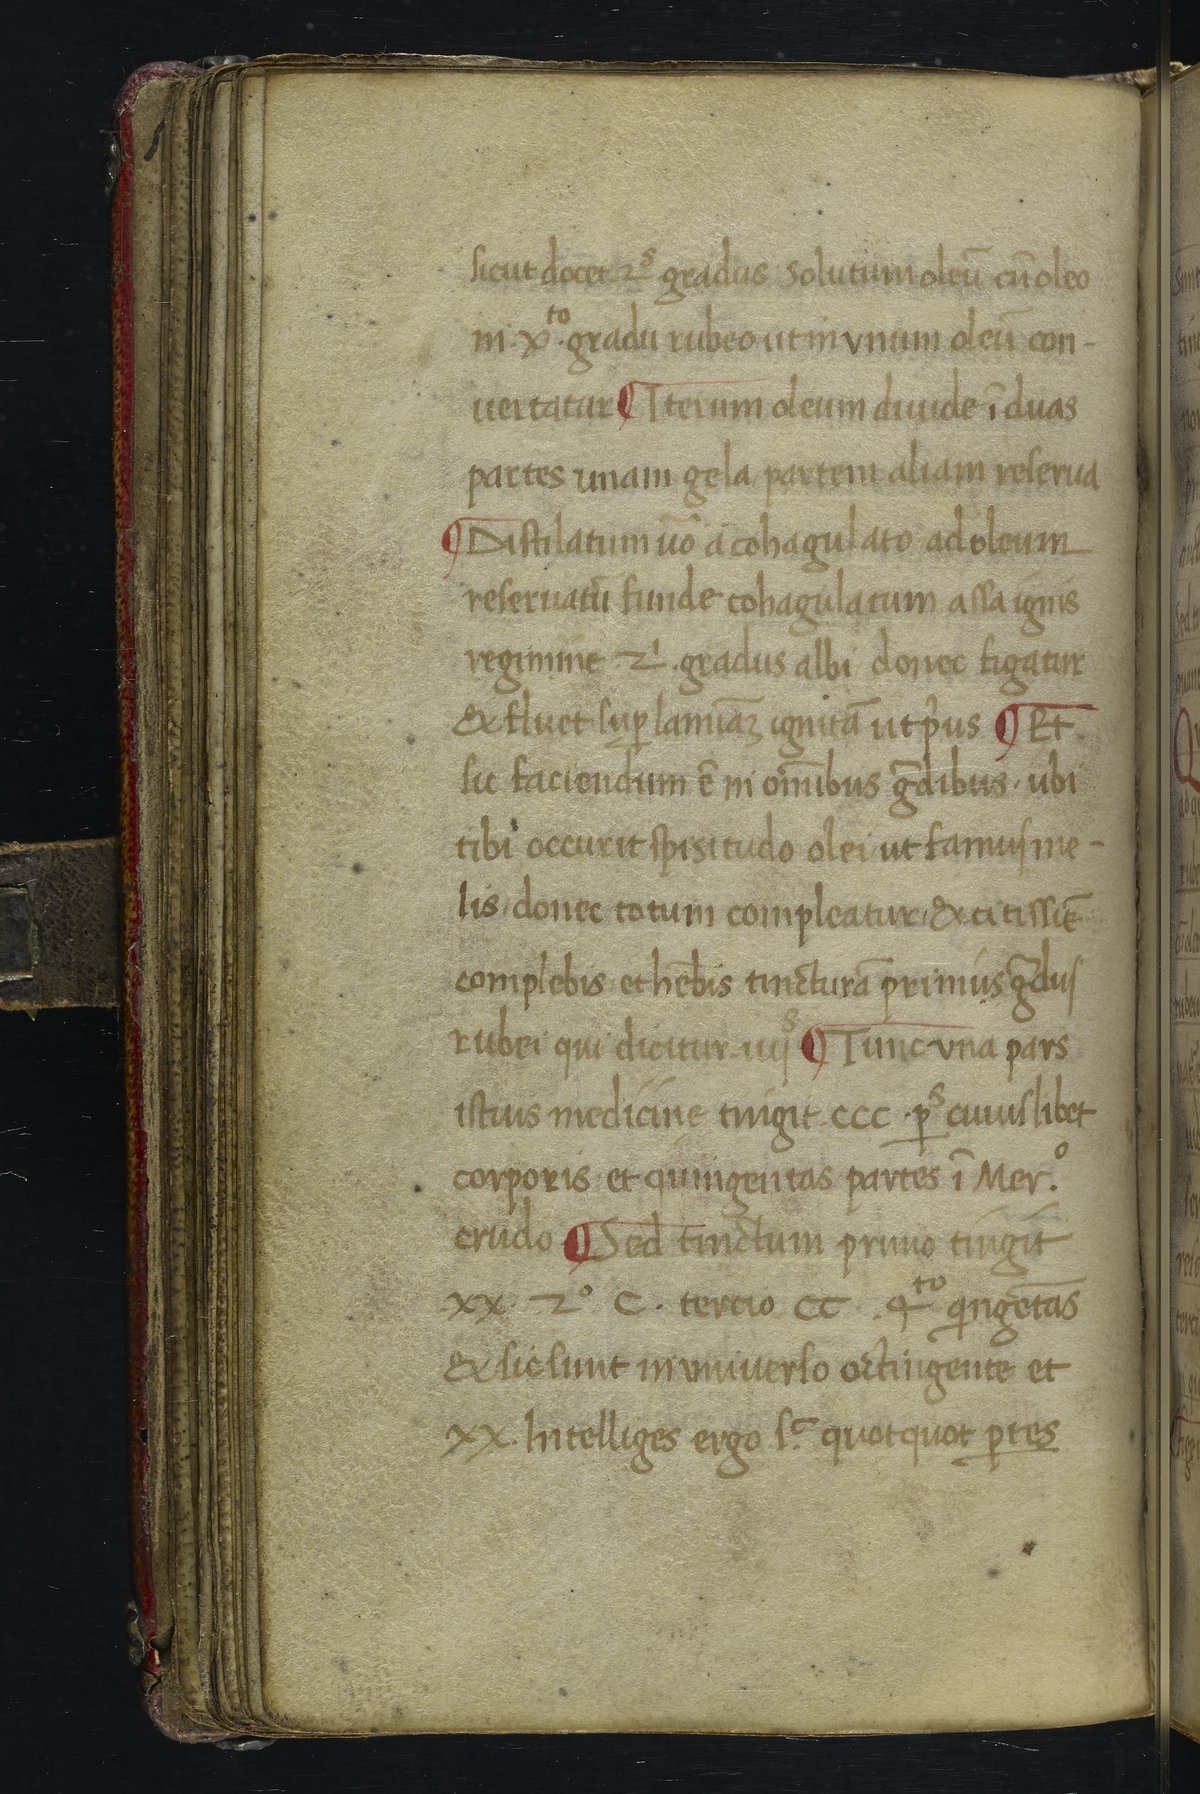 sicut docet 2s gradus solutum oleū cū oleo
in xto gradu rubeo ut in vnum oleū con-
uertatur ¶ Iterum oleum diuide ī duas
partes unam gela partem aliam reserua
¶ Distilatum ūo a cohagulato ad oleum
reseruatū funde cohagulatum assa ignis
regimine 2i gradus albi donec figatur
& fluet sup lamiā ignitā ut p̄us ¶ Et
sic faciendum ē in om̄ibus ḡdibus ubi
tibi occurit spisitudo olei ut famus me-
lis donec totum compleatur & citissīe
complebis et heb̄is tincturā primus ḡdus
rubei qui dicitur iiijs ¶ Tunc vna pars
istius medicine tingit CCC ps cuiuslibet
corporis et quingentas partes ī Mer.o
crudo ¶ Sed tinctum primo tingit
xx 2o C. tercio CC 4to qingētas
& sic sunt in vniuerso octingente et
xx. Intelliges ergo quotquot ptes